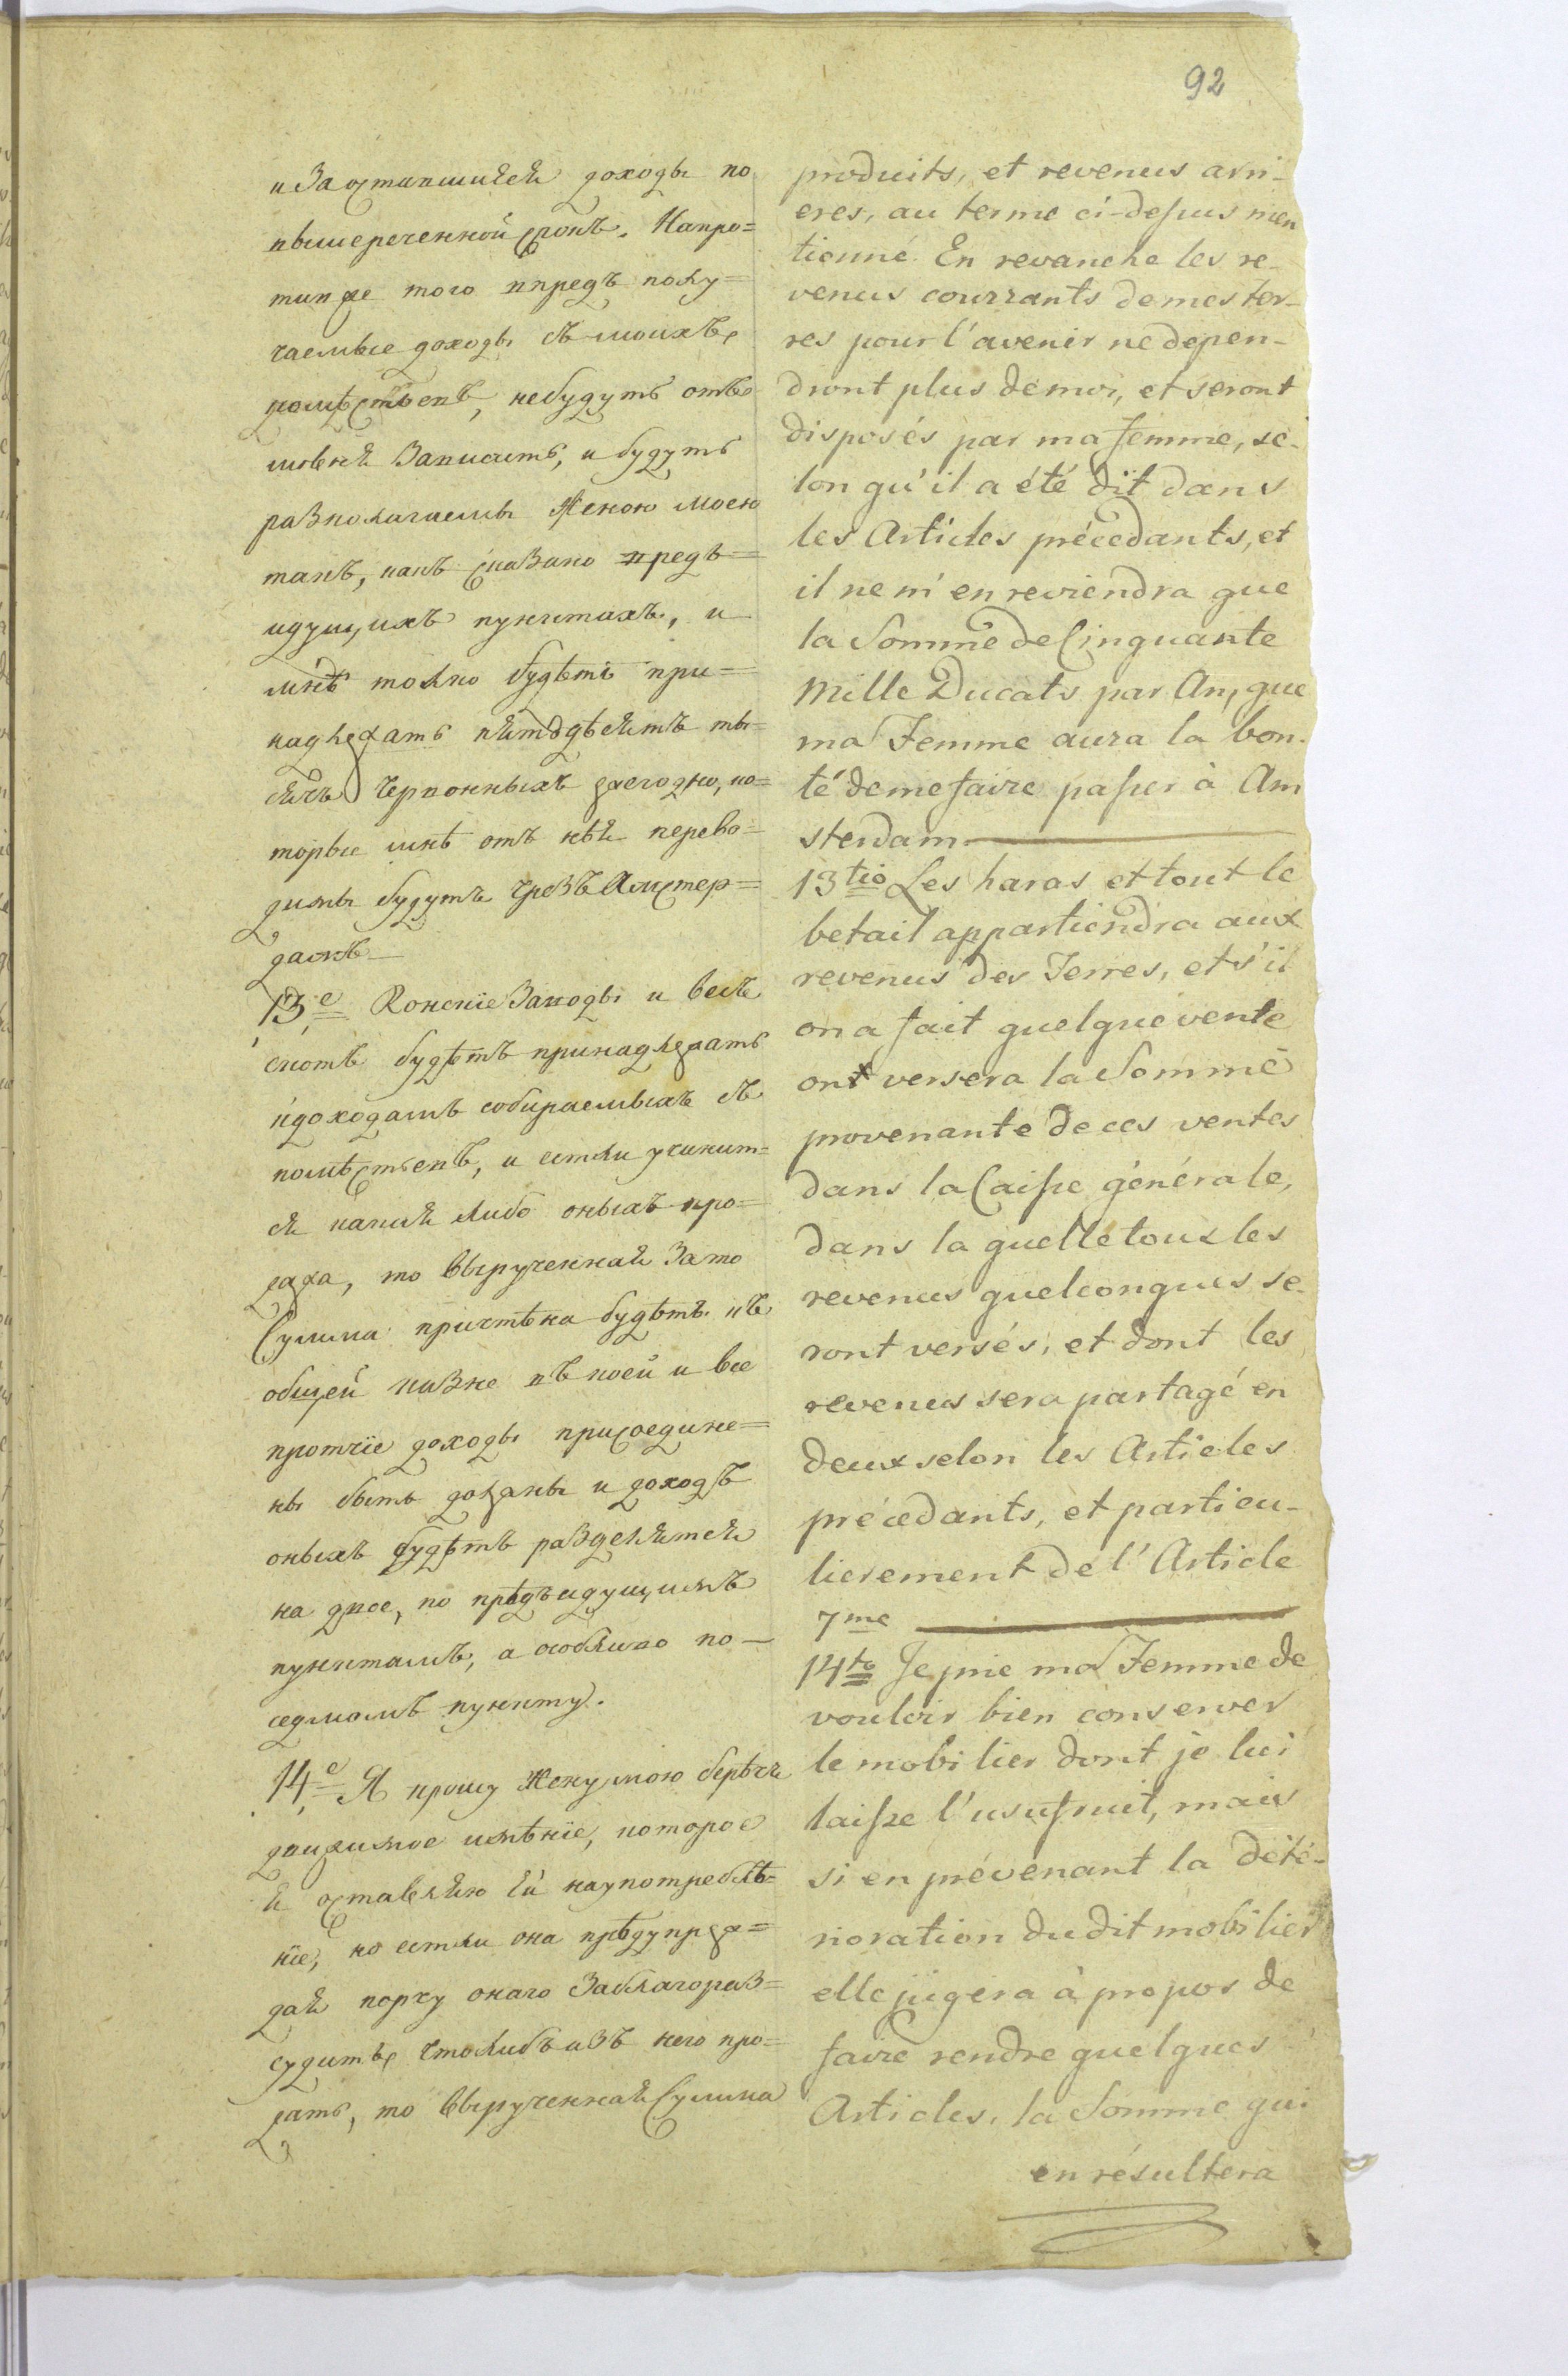 92
и Заоставшиеся доходы по
вышереченной срокъ. Напро=
тивже того впредъ полу=
чаемые доходы съ моихъ
помѣстьевъ, небудутъ отъ
меня Зависить, и будутъ
разполагаемы Женою моею
такъ, какъ сказано предъ=
идущихъ пунктахъ, и
мнѣ только будѣтъ при=
надлежать пятдѣсятъ ты=
сячь Червонныхъ ежегодно, ко=
торые мнѣ отъ нѣя перево=
димы будутъ чрезъ Амстер=
дамъ —
13,е Конскіе Заводы и весь
скотъ будѣтъ принадлежать
кдоходамъ собираемыхъ съ
помѣстьевъ, и естли учинит=
ся какая либо оныхъ про=
дажа, то Вырученная Зато
Сумма причтѣна будѣтъ къ
общей казне въ коей и все
протчіе доходы присоедине=
ны быть должны и доходъ
оныхъ будѣтъ разделятся
на двое, по прѣдъидущимъ
пунктамъ, а особливо по —
седмомъ пункту.
14,е Я прошу Жену мою беречь
движимое имѣніе, которое
я оставляю ей наупотреблѣ=
ніе, но естли она прѣдупреж=
дая порчу онаго Заблагораз=
судитъ чтолибъ изъ него про=
дать, то Вырученная Сумма
produits, et revenus arri-
eres, au terme ci-dessus men
tionné. En revanche les re-
venus courrants de mes ter-
res pour l'avenir ne depen-
dront plus de moi, et seront
disposés par ma femme, se-
lon qu'il a été dit dans
les Articles précedants, et
il ne m'en reviendra que
la Somme de Cinquante
Mille Ducats par An, que
ma Femme aura la bon-
té de me faire passer à Am
sterdam.—
13tio Les haras et tout le
betail appartiendra aux
revenus des Terres, et s'il
on a fait quelque vente
on versera la Somme
provenante de ces ventes
dans la Caisse générale,
dans la quelle tous les
revenus quelconques se-
ront versés, et dont les
revenus sera partagé en
deux selon les Articles
précedants, et particu-
lierement de l'Article
7me —
14to Je prie ma Femme de
vouloir bien conserver
le mobilier dont je lui
laisse l'usufruit, mais
si en prévenant la dété-
rioration du dit mobilier
elle jugera à propos de
faire rendre quelques
Articles, la Somme qui
en résultera